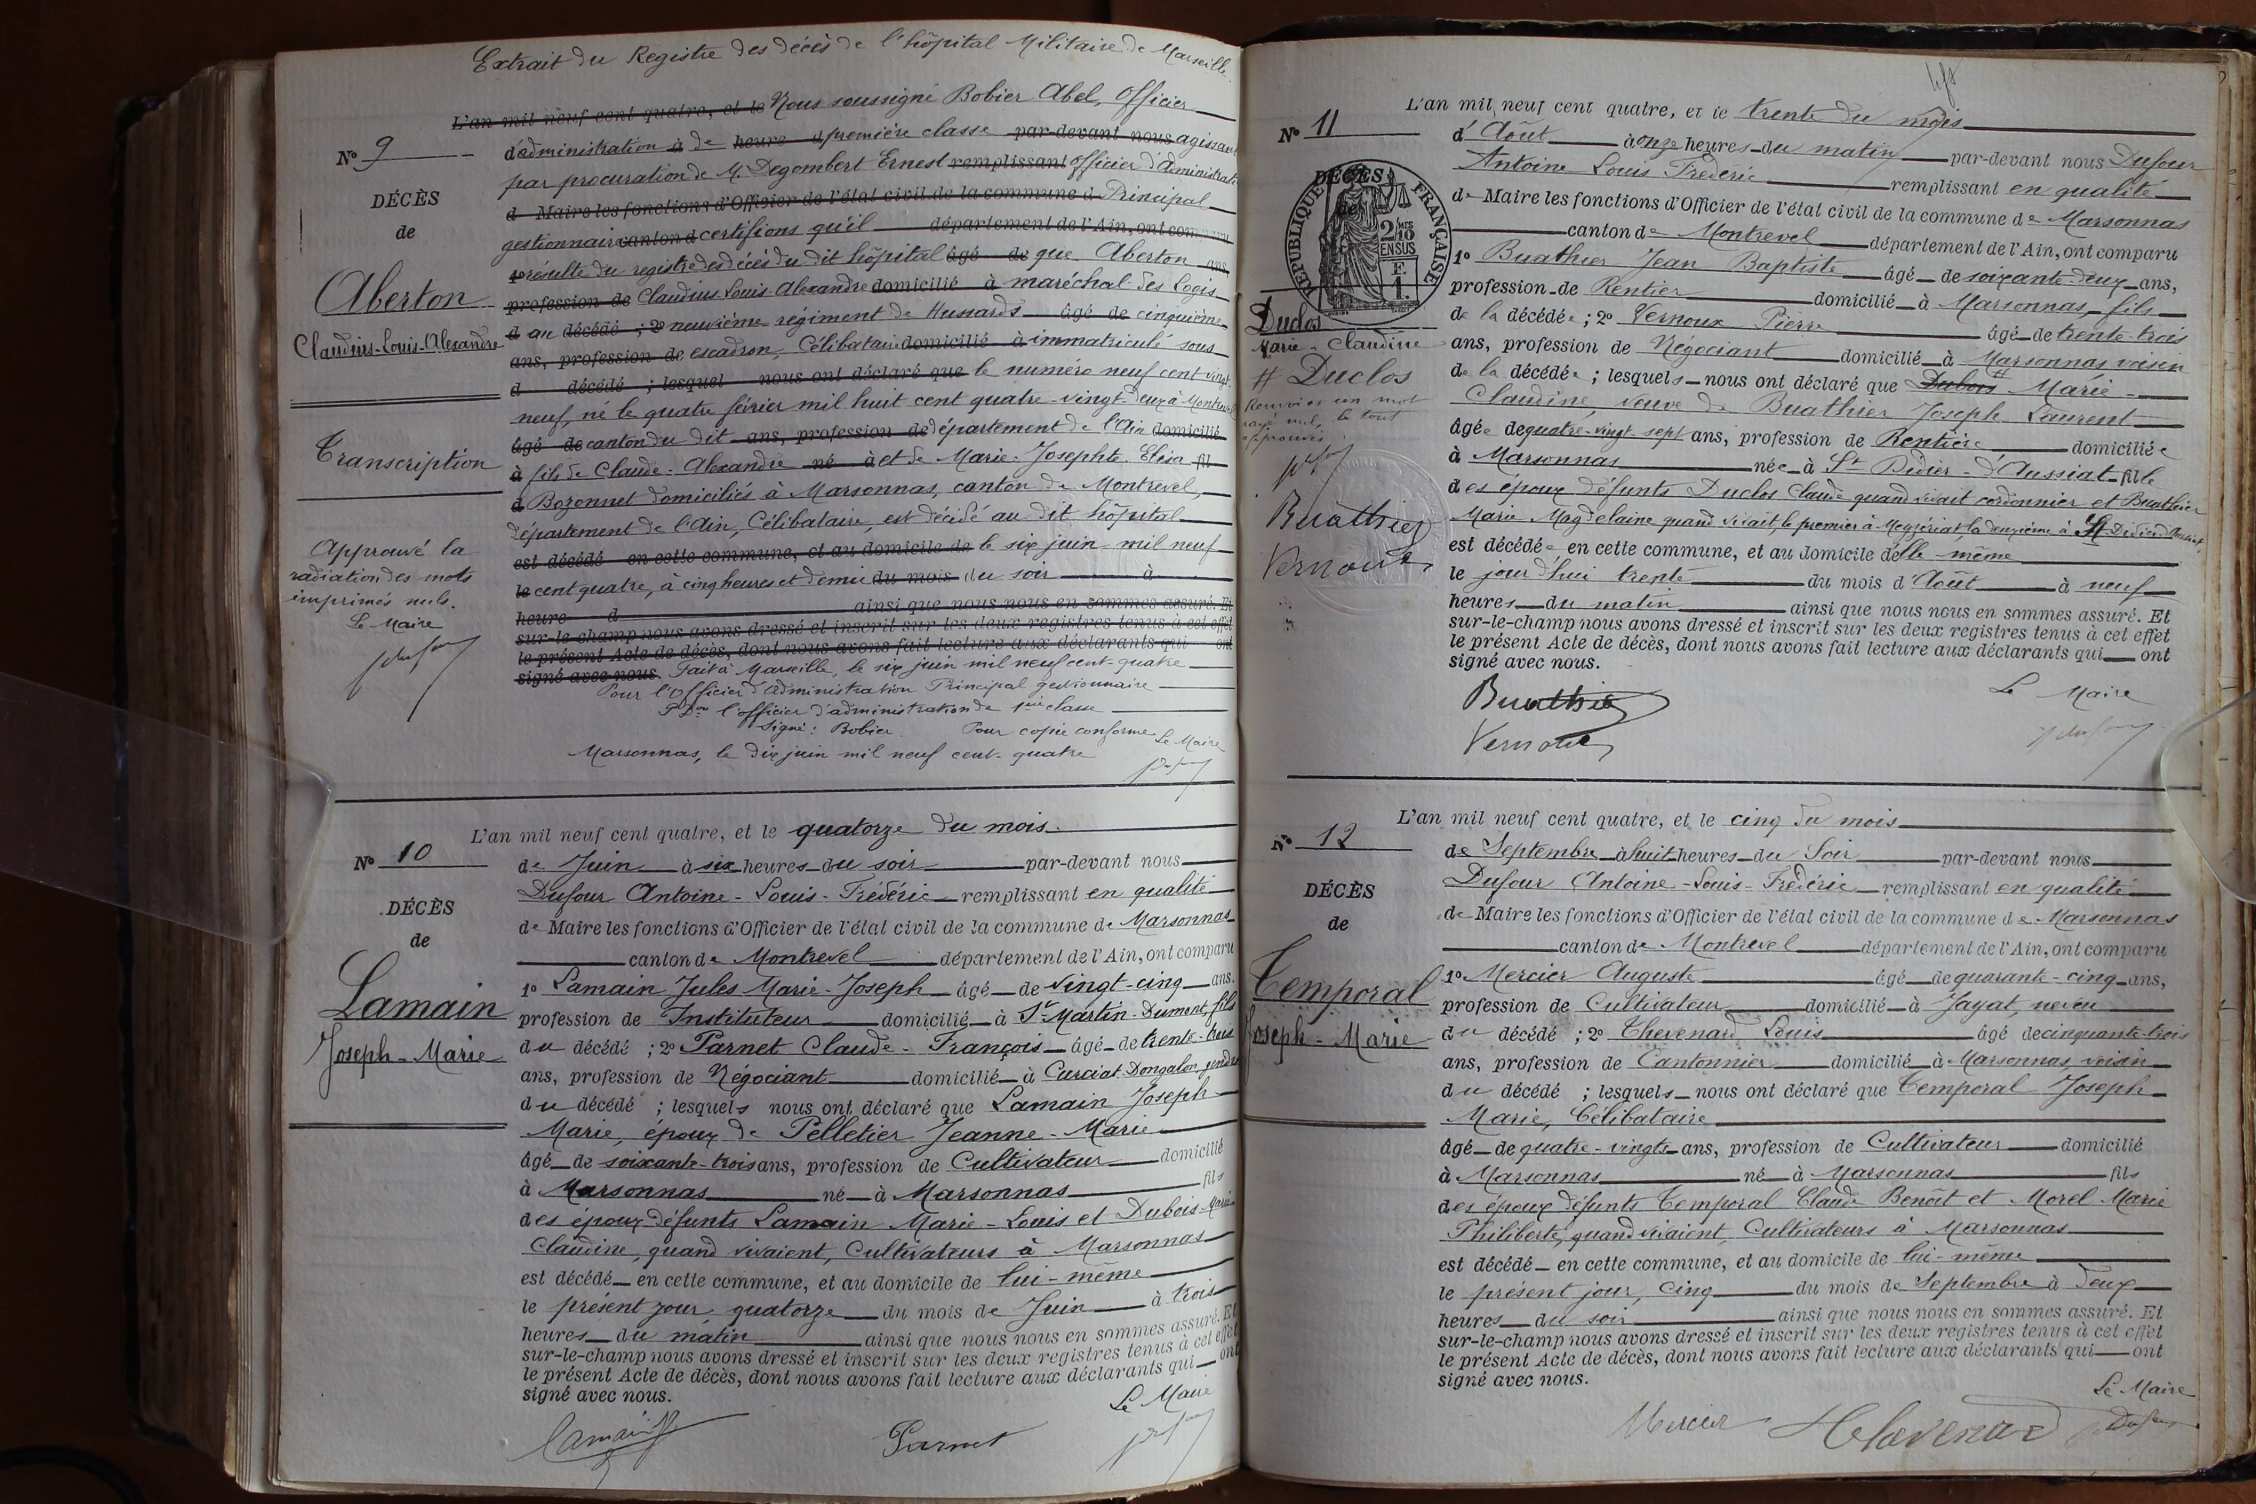 Extrait du Registre des décès de l'hôpital Militaire de Marseille.
L'an mil neuf cent quatre, et le Nous soussigné Bobier Abel, Officier
d'administration à de heure d première classe par-devant nous agissant
par procuration de M. Degombert Ernest remplissant officier d'administrat
d Maire les fonctions d'Officier de l'état civil de la commune d Principal
gestionnaire canton d certifions qu'il département de l'Ain, ont comparu
1o résulte du registre des décès du dit hôpital âgé de que Aberton ans,
profession de Claudius Louis Alexandre domicilié à maréchal des Logis
d au décédé ; 2o neuvième régiment de Hussards âgé de cinquième
ans, profession de escadron, Célibataire domicilié à immatriculé sous
d décédé ; lesquel nous ont déclaré que le numéro neuf cent vingt
neuf, né le quatre février mil huit cent quatre-vingt-deux à Montrevel
âgé de canton du dit ans, profession de département de l'Ain domicilié
à fils de Claude-Alexandre né à et de Marie-Josephte Elisa fil
d Bozonnet domiciliés à Marsonnas, canton de Montrevel,
département de l'Ain, Célibataire, est décédé au dit hôpital
est décédé en cette commune, et au domicile de le six juin mil neuf
le cent quatre, à cinq heures et demie du mois du soir à
heure d ainsi que nous nous en sommes assuré. Et
sur-le-champ nous avons dressé et inscrit sur les deux registres tenus à cet effet
le présent Acte de décès, dont nous avons fait lecture aux déclarants qui ont
signé avec nous. Fait à Marseille, le six juin mil neuf cent-quatre
Pour l'Officier d'administration Principal gestionnaire
l'officier d'administration de 1ère classe
Signé : Bobier. Pour copie conforme Le Maire
Marsonnas, le dix juin mil neuf cent-quatre
No 9
DÉCÈS
de
Aberton
Claudius-Louis-Alexandre
Transcription
Approuvé la
radiation des mots
imprimés nuls.
Le Maire
No 10
DÉCÈS
de
Lamain
Joseph-Marie
L'an mil neuf cent quatre, et le quatorze du mois
de Juin à six heures du soir par-devant nous
Dufour Antoine-Louis-Frédéric remplissant en qualité
de Maire les fonctions d'Officier de l'état civil de la commune de Marsonnas
canton de Montrevel département de l'Ain, ont comparu
1o Lamain Jules Marie-Joseph âgé de vingt-cinq ans,
profession de Instituteur domicilié à St Martin-Dumont, fils
du décédé ; 2o Parnet Claude-François âgé de trente-trois
ans, profession de Négociant domicilié à Curciat-Dongalon gendre
du décédé ; lesquels nous ont déclaré que Lamain Joseph
Marie, époux de Pelletier Jeanne-Marie
âgé de soixante-trois ans, profession de Cultivateur domicilié
à Marsonnas né à Marsonnas fils
des époux défunts Lamain Marie-Louis et Dubois-Marie
Claudine, quand vivaient, Cultivateurs à Marsonnas
est décédé en cette commune, et au domicile de lui-même
le présent jour, quatorze du mois de Juin à trois
heures du matin ainsi que nous nous en sommes assuré. Et
sur-le-champ nous avons dressé et inscrit sur les deux registres tenus à cet effet
le présent Acte de décès, dont nous avons fait lecture aux déclarants qui ont
signé avec nous.
Le Maire
Lamain
Parnet
No 11
DÉCÈS
de
RÉPUBLIQUE FRANÇAISE
2/10
EN SUS
F.
1.
Duclos
Marie-Claudine
# Duclos
Renvoi et un mot
rayé nul, le tout
approuvé
Buathier
Vernoux
L'an mil neuf cent quatre, et le trente du mois
d'Août à onze heures du matin par-devant nous Dufour
Antoine Louis Frédéric remplissant en qualité
de Maire les fonctions d'Officier de l'état civil de la commune de Marsonnas
canton de Montrevel département de l'Ain, ont comparu
1o Buathier Jean Baptiste âgé de soixante-deux ans,
profession de Rentier domicilié à Marsonnas, fils
de la décédée ; 2o Vernoux Pierre âgé de trente-trois
ans, profession de Négociant domicilié à Marsonnas, voisin
de la décédée ; lesquels nous ont déclaré que Dubois # Marie
Claudine, veuve de Buathier Joseph Laurent
âgée de quatre-vingt-sept ans, profession de Rentière domiciliée
à Marsonnas née à St Didier-d'Aussiat fille
des époux défunts Duclos Claude quand vivait cordonnier et Buathier
Marie Magdelaine quand vivait, le premier à Mézériat, la deuxième à St-Didier d'Aussiat,
est décédée en cette commune, et au domicile d'elle-même
le jour d'hui trente du mois d'Août à neuf
heures du matin ainsi que nous nous en sommes assuré. Et
sur-le-champ nous avons dressé et inscrit sur les deux registres tenus à cet effet
le présent Acte de décès, dont nous avons fait lecture aux déclarants qui ont
signé avec nous.
Le Maire
Buathier
Vernoux
No 12
DÉCÈS
de
Temporal
Joseph-Marie
L'an mil neuf cent quatre, et le cinq du mois
de Septembre à huit heures du Soir par-devant nous
Dufour Antoine-Louis-Frédéric remplissant en qualité
de Maire les fonctions d'Officier de l'état civil de la commune de Marsonnas
canton de Montrevel département de l'Ain, ont comparu
1o Mercier Auguste âgé de quarante-cinq ans,
profession de Cultivateur domicilié à Jayat, neveu
du décédé ; 2o Thevenard Louis âgé de cinquante-trois
ans, profession de Cantonnier domicilié à Marsonnas, voisin
du décédé ; lesquels nous ont déclaré que Temporal Joseph
Marie, Célibataire
âgé de quatre-vingts ans, profession de Cultivateur domicilié
à Marsonnas né à Marsonnas fils
des époux défunts Temporal Claude Benoît et Morel Marie
Philiberte, quand vivaient, Cultivateurs à Marsonnas
est décédé en cette commune, et au domicile de lui-même
le présent jour, cinq du mois de Septembre à deux
heures du soir ainsi que nous nous en sommes assuré. Et
sur-le-champ nous avons dressé et inscrit sur les deux registres tenus à cet effet
le présent Acte de décès, dont nous avons fait lecture aux déclarants qui ont
signé avec nous.
Le Maire
Mercier Thevenard Dufour